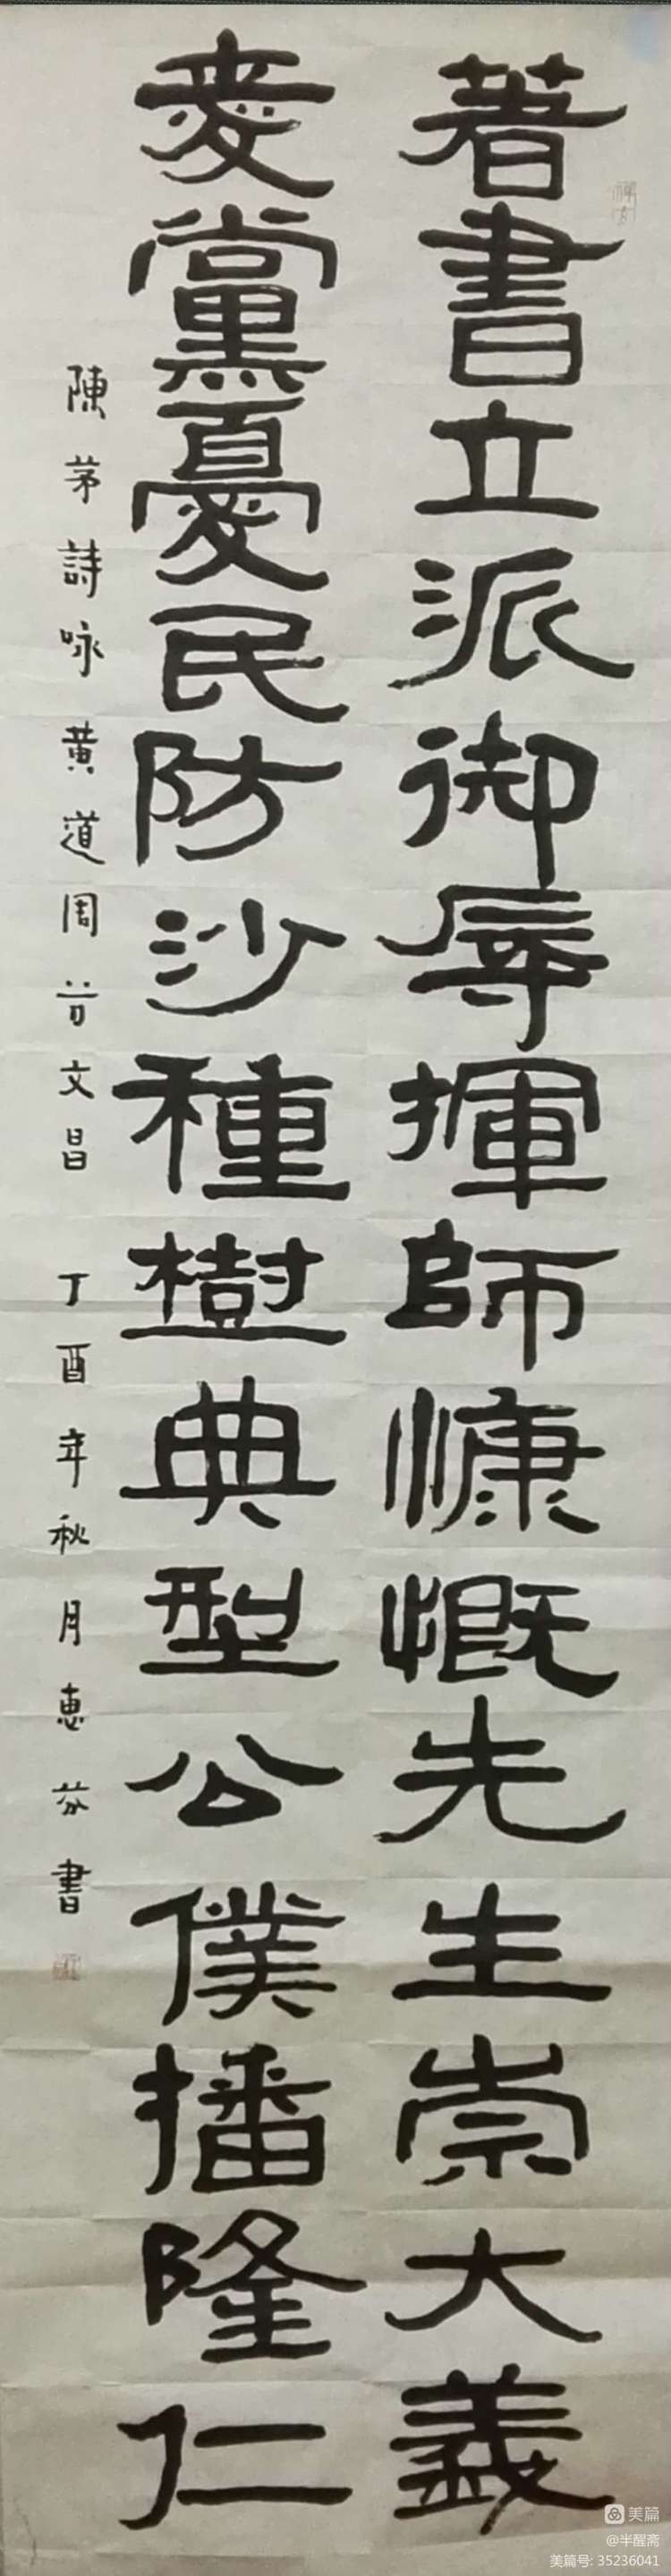 著書立派御辱揮師慷慨先生崇大義
爱黨憂民防沙種樹典型公僕播隆仁
陳茅詩咏黄道周谷文昌 丁酉年秋月惠芬書
美篇
@半醒斋
美篇号: 35236041